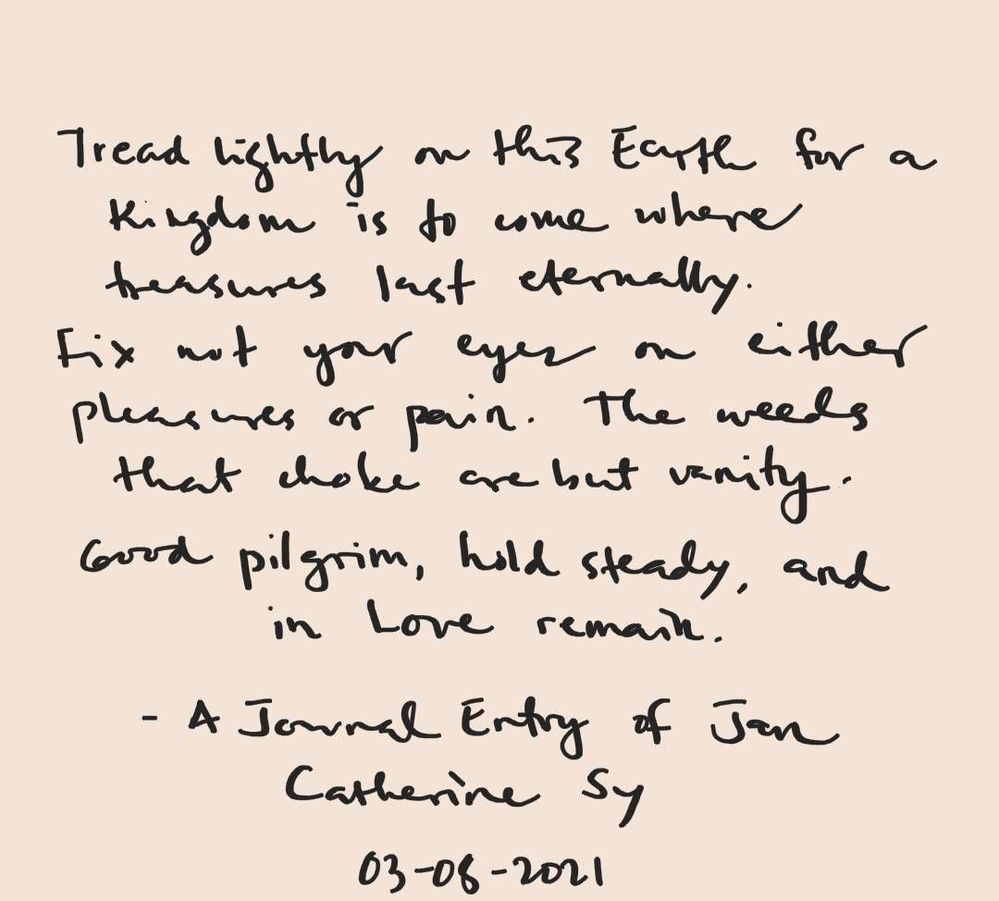 Tread lightly on this Earth for a
Kingdom is to come where
treasures last eternally.
Fix not your eyes on either
pleasures or pain. The weeds
that choke are but vanity.
Good pilgrim, hold steady, and
in Love remain.
- A Journal Entry of Jan
Catherine Sy
03-08-2021